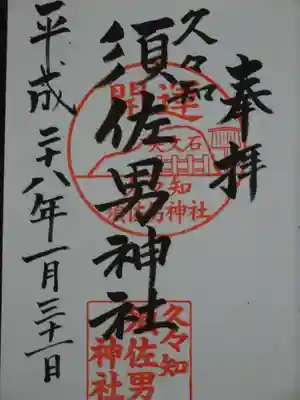 奉拝
久々知
須佐男神社
平成二十八年一月三十一日
開運
久々知
須佐男神社
久々知
須佐男
神社